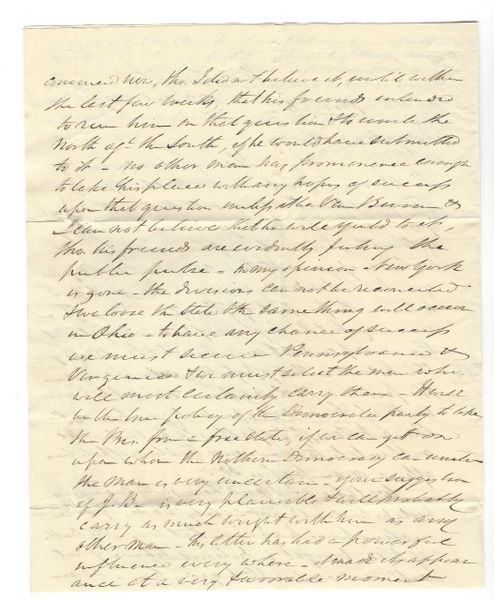 convinced now, tho. I did not believe it, until within
the last few weeks, that his friends intended
to run him on that question & to unite the
North agt. the South, if he would have submitted
to it – no other man has prominence enough
to take his place with any hopes of success
upon that question unless it be Van Buren &
I can not believe that he will yield to it,
tho. his friends are evidently feeling the
public pulse – In my opinion New York
is gone – the divisions can not be reconciled
& we loose the State & the same thing will occur
in Ohio – to have any chance of success
we must secure Pennsylvania &
Virginia & we must select the men who
will most certainly carry them – It will
be the true policy of the Democratic party to take
the Pres. from a free state, if we can get one
upon whom the Northern Democracy can unite
the man is very uncertain – your suggestion
of J. B– is very plausible & will probably
carry as much weight with him as any
other man – His letter has had a powerful
influence every where – & made its appear
ance at a very favorable moment